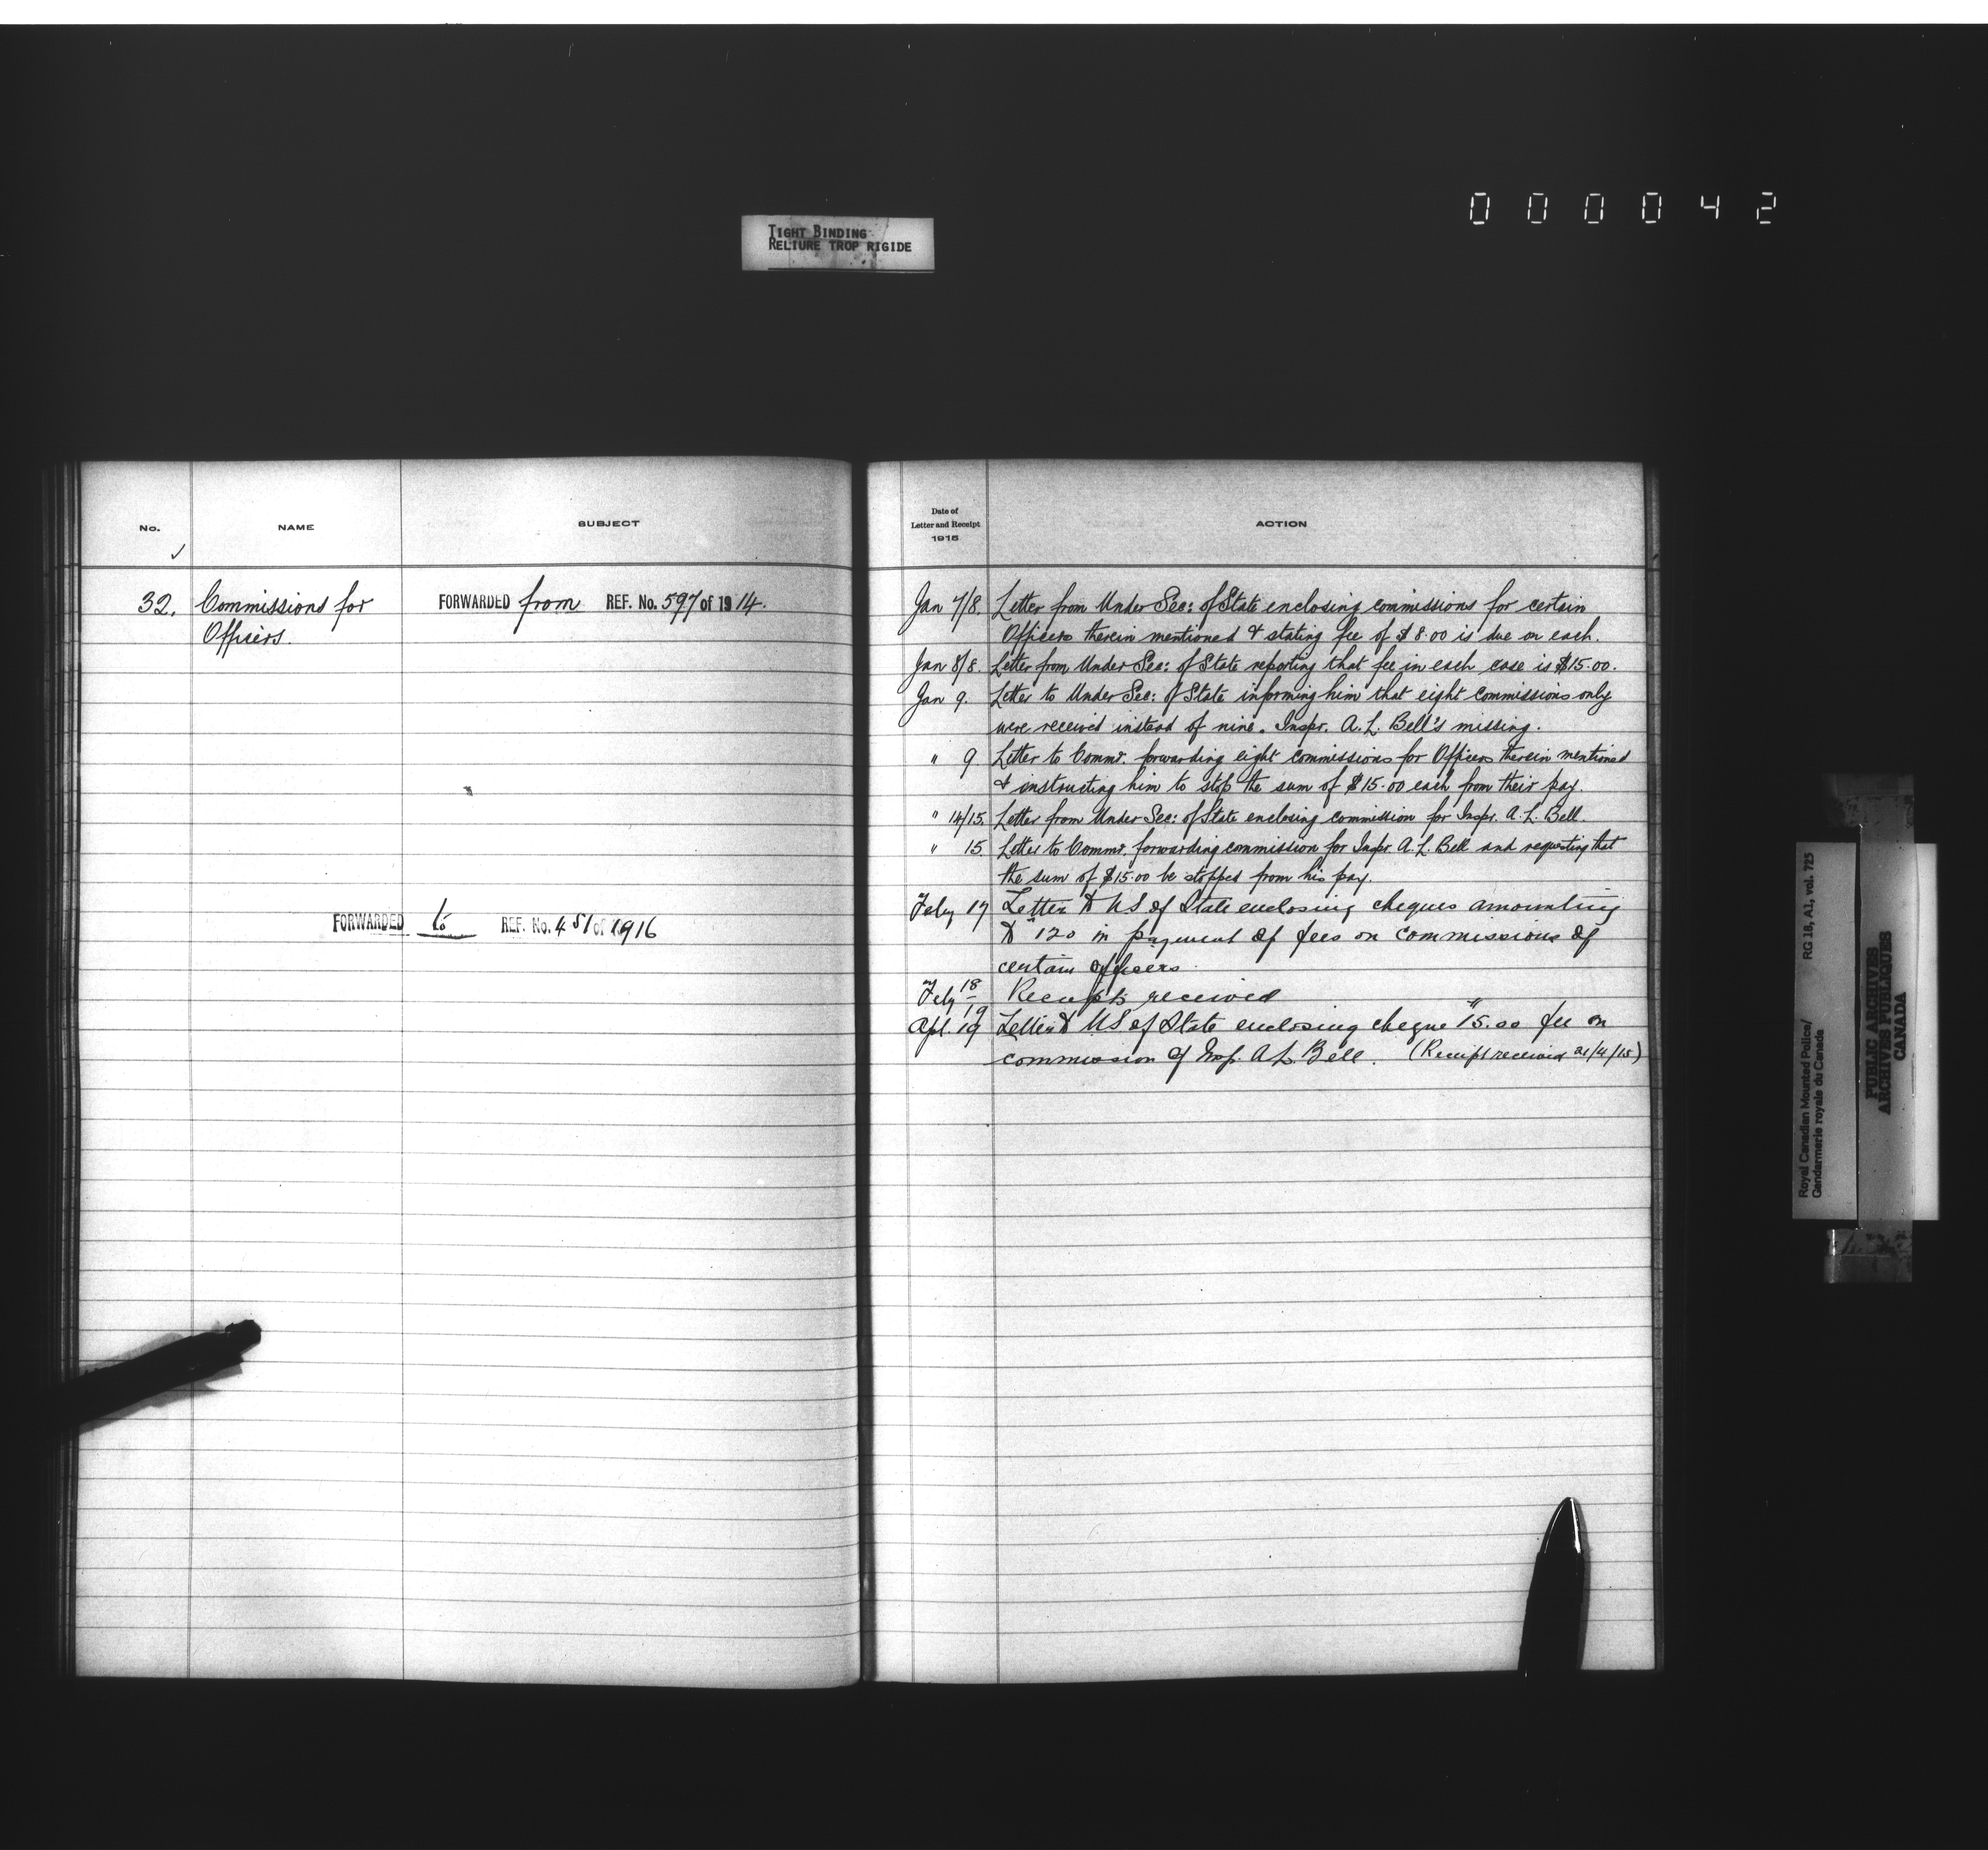 000042
TIGHT BINDING
RELIURE TROP RIGIDE
No.
NAME
SUBJECT
32. Commissions for
Officers.
FORWARDED from REF. No. 597 of 1914.
FORWARDED to REF. No. 451 of 1916
Date of
Letter and Receipt
1915
ACTION
Jan 7/8. Letter from Under Sec: of State enclosing commissions for certain
Officers therein mentioned & stating fee of $8.00 is due on each.
Jan 8/8. Letter from Under Sec: of State reporting that fee in each case is $15.00.
Jan 9. Letter to Under Sec: of State informing him that eight commissions only
were received instead of nine. Inspr. A. L. Bell's missing.
" 9 Letter to Commr. forwarding eight commissions for Officers therein mentioned
& instructing him to stop the sum of $15.00 each from their pay.
" 14/15. Letter from Under Sec: of State enclosing commission for Inspr. A. L. Bell.
" 15. Letter to Commr. forwarding commission for Inspr. A. L. Bell and requesting that
the sum of $15.00 be stopped from his pay.
Feby 17 Letter to US of State enclosing cheques amounting
to 120 in payment of fees on commissions of
certain officers.
Feby 18/19 Receipts received
Apl. 19 Letter to US. of State enclosing cheque 15.00 fee on
commission of Insp. A L. Bell. (Receipt received 21/4/15)
Royal Canadian Mounted Police/
Gendarmerie royale du Canada
RG 18, A1, vol. 725
PUBLIC ARCHIVES
ARCHIVES PUBLIQUES
CANADA